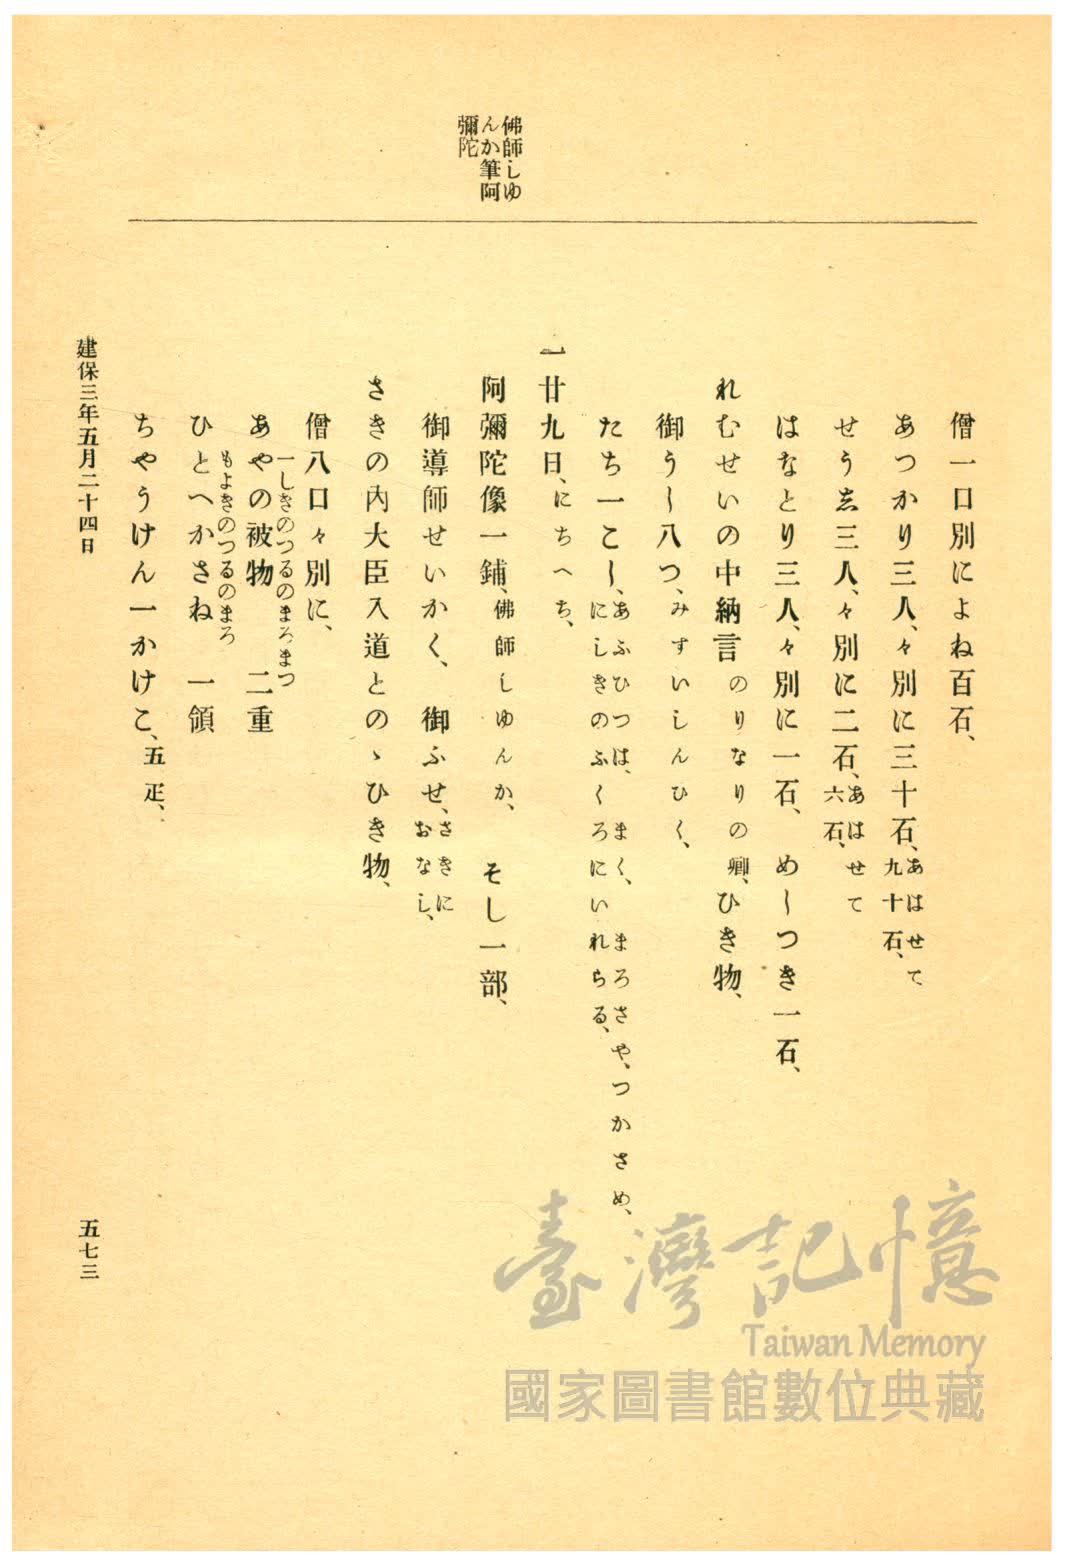 佛師しゆ
んか筆阿
彌陀
僧一口別によね百石、
あつかり三人、々別に三十石、あはせて
九十石、
せうゑ三人、々別に二石、あはせて
六石、
はなとり三人、々別に一石、　めしつき一石、
れむせいの中納言のりなりの卿、ひき物、
御うし八つ、みすいしんひく、
たち一こし、あふひつは、まく、まろさや、つかさめ、
にしきのふくろにいれらる、
一廿九日、にちへち、
阿彌陀像一鋪、佛師しゆんか、　そし一部、
御導師せいかく、　御ふせ、さきに
おなし、
さきの內大臣入道とのゝひき物、
僧八口々別に、
一しきのつるのまろまつ
あやの被物　二重
もよきのつるのまろ
ひとへかさね　一領
ちやうけん一かけこ、五疋、
建保三年五月二十四日
五七三
臺灣記憶
Taiwan Memory
國家圖書館數位典藏